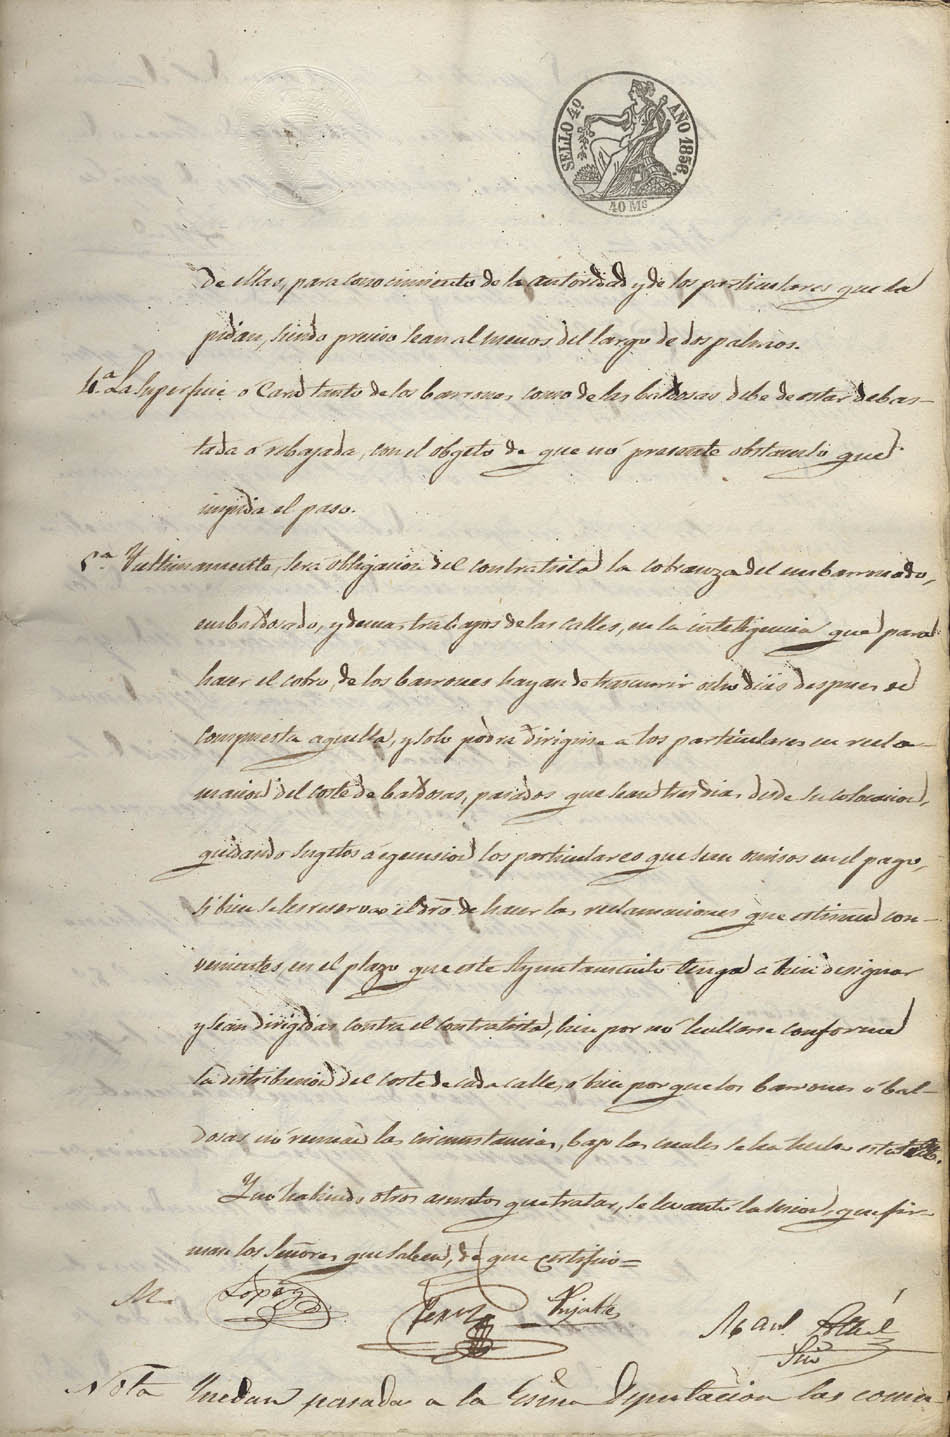 SELLO 4º. AÑO 1856.
40 Ms
de ellas, para conocimiento de la autoridad y de los particulares que la
pidan, siendo preciso sean al menos del largo de dos palmos.
4.ª La superficie ó Cara tanto de los barrones como de las baldosas debe de estar debas-
tada ó rebajada, con el obgeto de que nó presente obstaculo que
impida el paso.
5.ª Yultimamente, será obligacion del contratista la cobranza del embarronado,
embaldosado, y demas trabajos de las calles, en la inteligencia que para
hacer el cobro, de los barrones hayan de trascurrir ocho dias despues de
compuesta aquella, y solo podra dirigirse a los particulares en recla-
macion del coste de baldosas, pasados que sean tres dias desde su colocacion,
quedando sugetos á egecucion los particulares que sean omisos en el pago,
si bien se les reserva el dro. de hacer las reclamaciones que estimen con-
venientes, en el plazo que este Ayuntamiento tenga a bien designar
y sean dirigidas contra el contratista, bien por nó hallarse conforme
la distribucion del coste de cada calle, ó bien por que los barrones ó bal-
dosas nó reunan las circunstancias, bajo las cuales se ha hecho esta
Y no habiendo otros asuntos que tratar, se levantó la sesion, que fir-
man los Señores que saben, de que certifico=
López Perez
Srio
Nota Quedan pasadas a la Esma Diputacion las